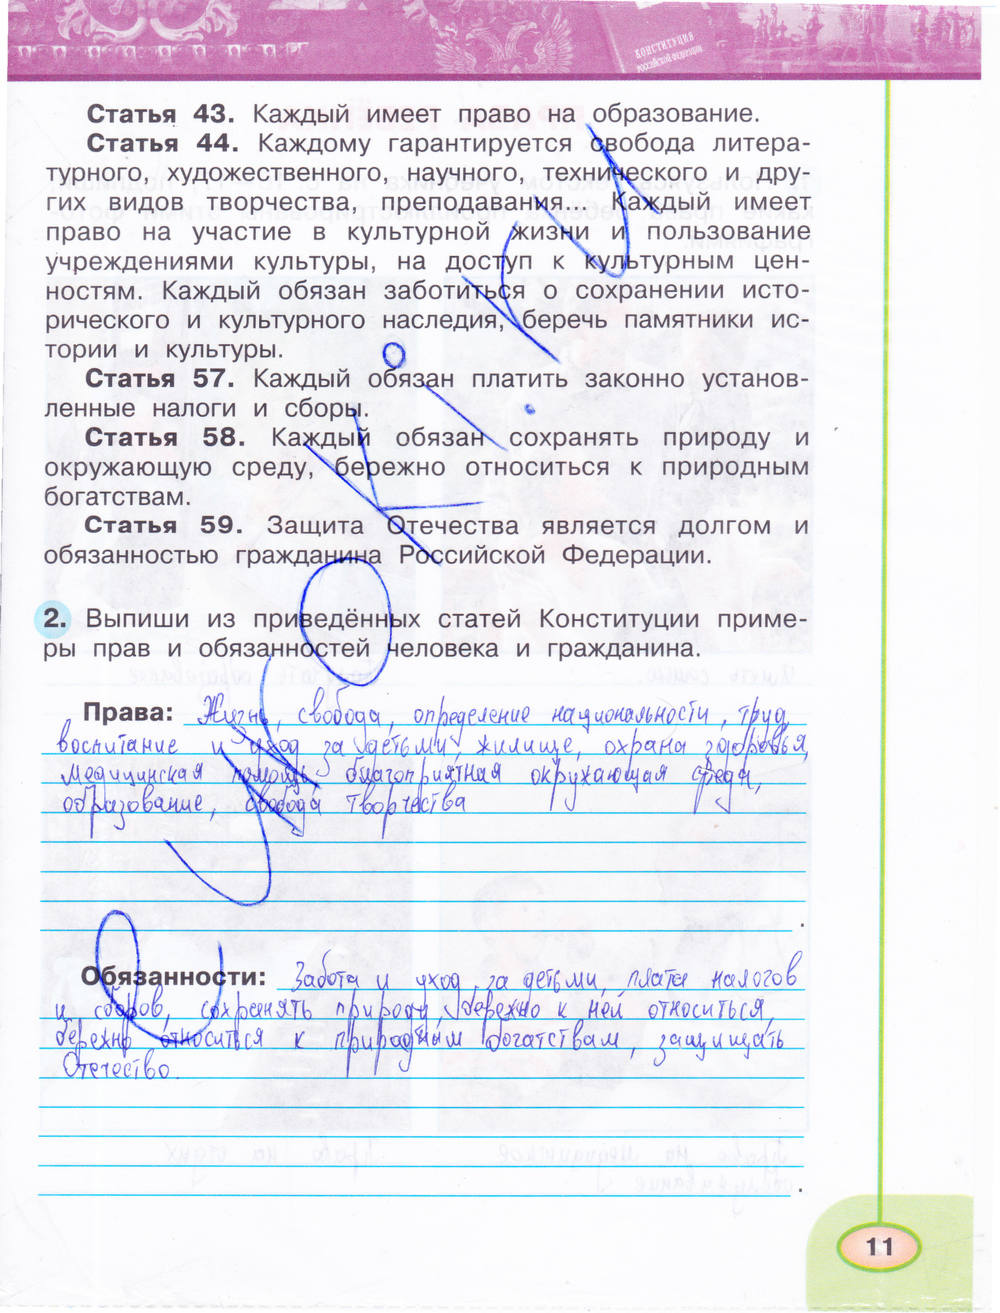 КОНСТИТУЦИЯ
РОССИЙСКОЙ ФЕДЕРАЦИИ
Статья 43. Каждый имеет право на образование.
Статья 44. Каждому гарантируется свобода литера-
турного, художественного, научного, технического и дру-
гих видов творчества, преподавания... Каждый имеет
право на участие в культурной жизни и пользование
учреждениями культуры, на доступ к культурным цен-
ностям. Каждый обязан заботиться о сохранении исто-
рического и культурного наследия, беречь памятники ис-
тории и культуры.
Статья 57. Каждый обязан платить законно установ-
ленные налоги и сборы.
Статья 58. Каждый обязан сохранять природу и
окружающую среду, бережно относиться к природным
богатствам.
Статья 59. Защита Отечества является долгом и
обязанностью гражданина Российской Федерации.
2. Выпиши из приведённых статей Конституции приме-
ры прав и обязанностей человека и гражданина.
Права: Жизнь, свобода, определение национальности, труд,
воспитание и уход за детьми, жилище, охрана здоровья,
медицинская помощь, благоприятная окружающая среда,
образование, свобода творчества
.
Обязанности: Забота и уход за детьми, плата налогов
и сборов, сохранять природу, бережно к ней относиться,
бережно относиться к природным богатствам, защищать
Отечество.
.
11